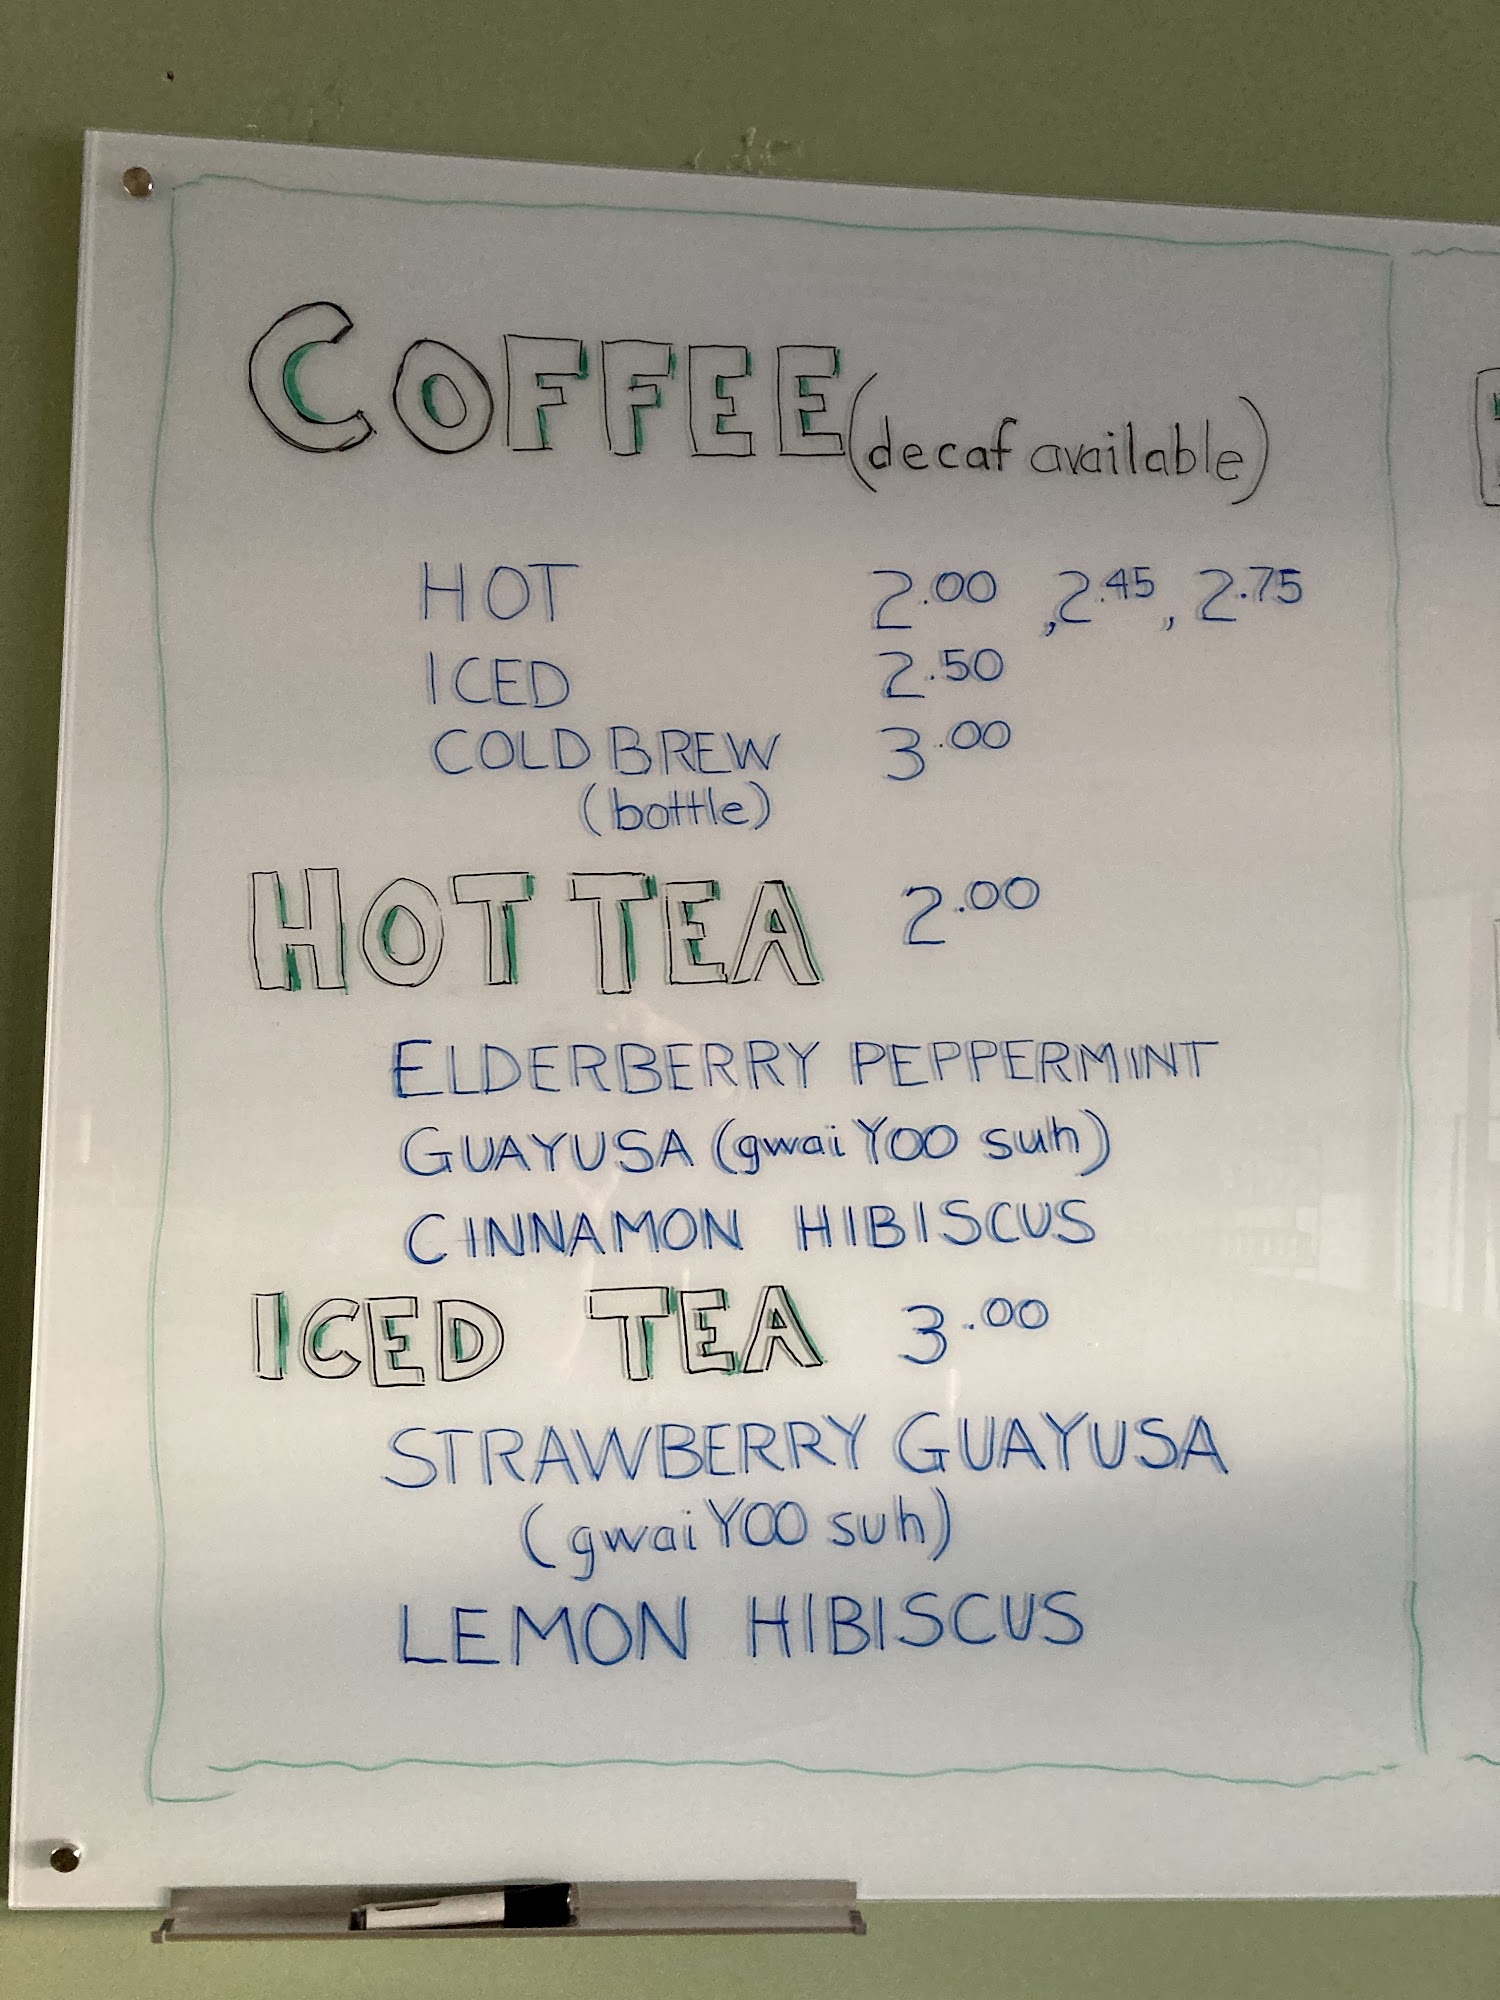 COFFEE (decaf available)
HOT 2.00 , 2.45 , 2.75
ICED 2.50
COLD BREW 3.00
(bottle)
HOT TEA 2.00
ELDERBERRY PEPPERMINT
GUAYUSA (gwai YOO suh)
CINNAMON HIBISCUS
ICED TEA 3.00
STRAWBERRY GUAYUSA
(gwai YOO suh)
LEMON HIBISCUS